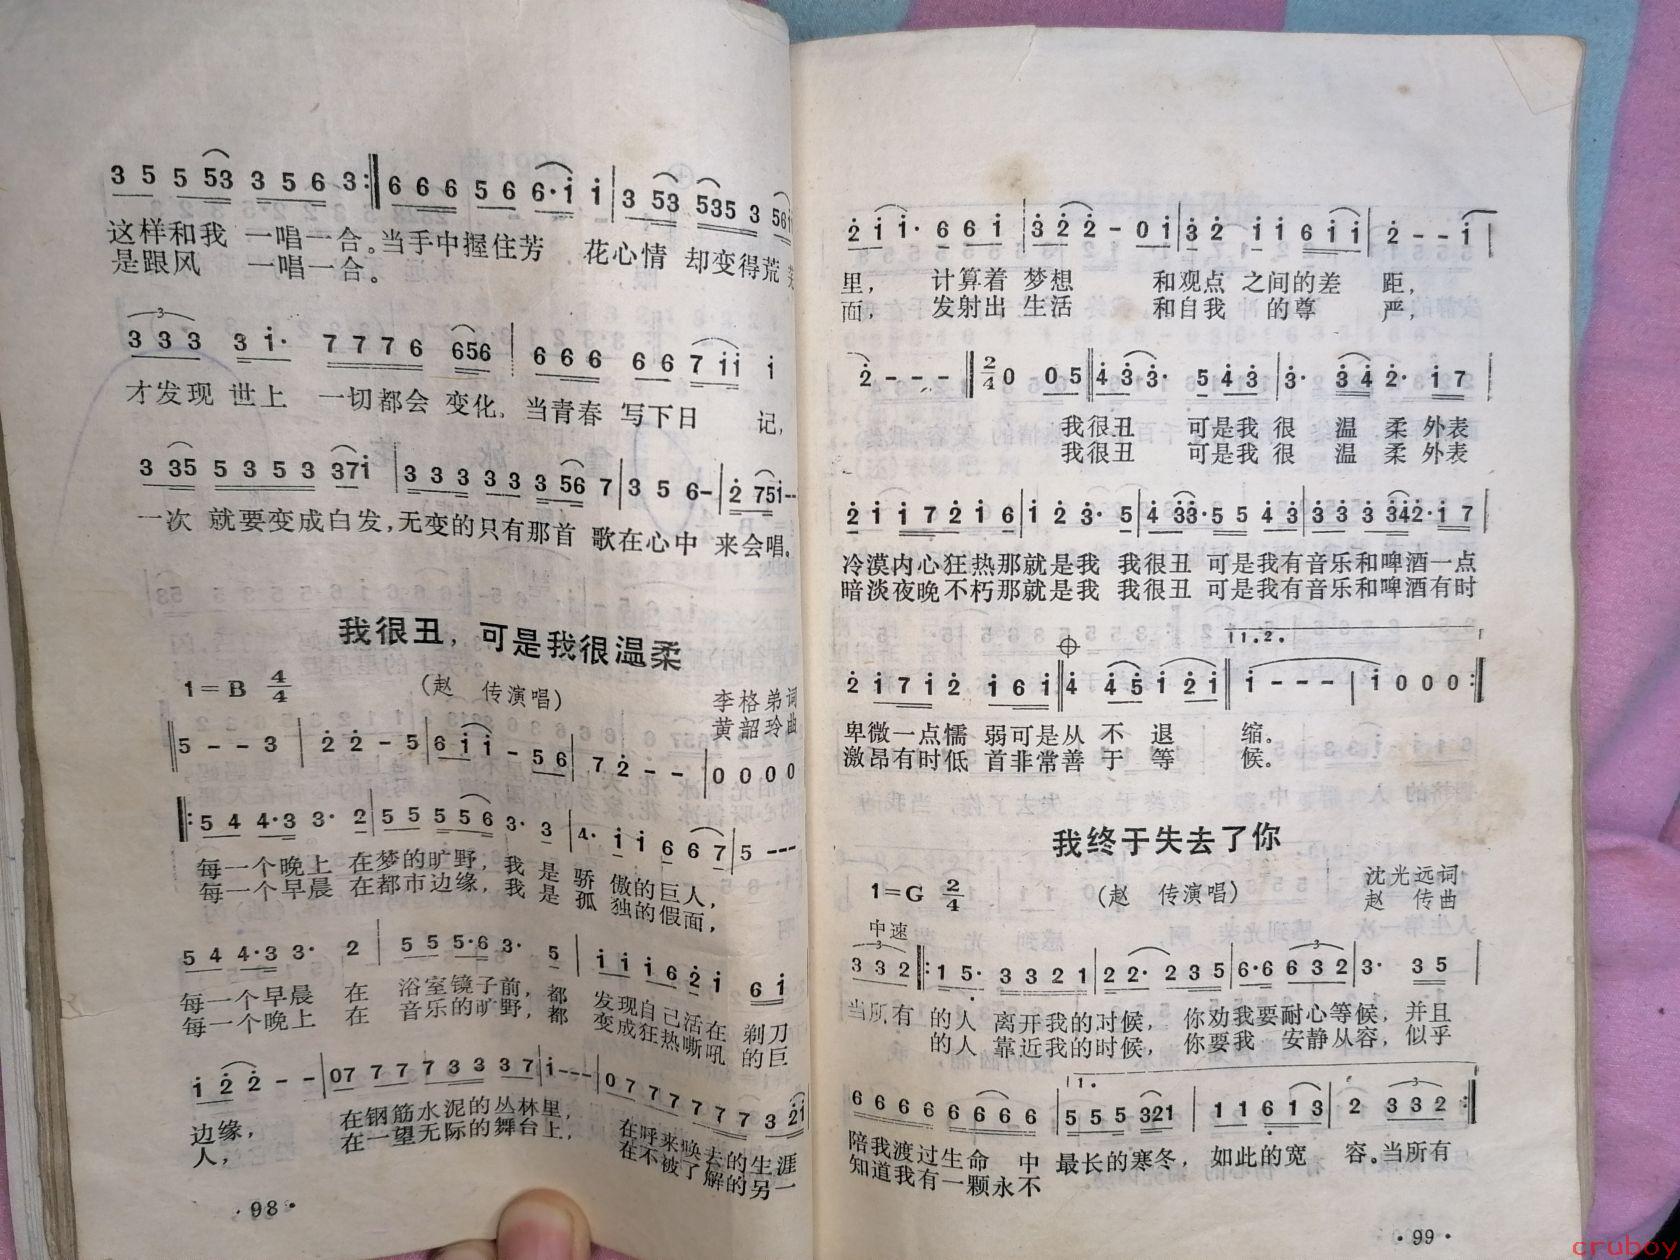 3 5 5 53 3 5 6 3 :‖ 6 6 6 5 6 6·i i | 3 53 535 3 56i
这样和我 一唱一合。当手中握住芳 花心情 却变得荒
是跟风 一唱一合。
3 3 3 3 i· 7 7 7 6 656 | 6 6 6 6 6 7 i i i
才发现 世上 一切都会 变化, 当青春 写下日 记,
3 35 5 3 5 3 37i | 3 3 3 3 3 3 56 7 | 3 5 6- | 2 75i--
一次 就要变成白发,无变的只有那首 歌在心中 来会唱。
我很丑,可是我很温柔
1=B 4/4 (赵 传演唱) 李格弟词
黄韶玲曲
5 - - 3 | 2 2 - 5 | 6 i i - 5 6 | 7 2 - - | 0 0 0 0
‖: 5 4 4·3 3· 2 | 5 5 5 5 6 3· 3 | 4· i i 6 6 7 | 5 ---
每一个晚上 在梦的旷野,我 是 骄 傲的巨人,
每一个早晨 在都市边缘,我 是 孤 独的假面,
5 4 4·3 3· 2 | 5 5 5·6 3· 5 | i i i 6 2 i 6 i
每一个早晨 在 浴室镜子前,都 发现自己活在 剃刀
每一个晚上 在 音乐的旷野,都 变成狂热嘶吼 的巨
i 2 2 - - | 07 7 7 7 3 3 3 7 | i--- | 0 7 7 7 7 7 7 7 3 2i
边缘, 在钢筋水泥的丛林里, 在呼来唤去的生涯
人, 在一望无际的舞台上, 在不被了解的另一
·98·
2 i i· 6 6 i | 3 2 2 - 0 i | 3 2 i i 6 i i | 2 - - i |
里, 计算着 梦想 和观点 之间的差 距,
面, 发射出 生活 和自我 的尊 严,
2 - - - ‖ 2/4 0 05 ‖ 4 3 3· 5 4 3 | 3· 3 4 2· i 7
我很丑 可是我 很 温 柔 外表
我很丑 可是我 很 温 柔 外表
2 i i 7 2 i 6 | i 2 3· 5 | 4 33·5 5 4 3 | 3 3 3 342·i 7 |
冷漠内心狂热那就是我 我很丑 可是我有音乐和啤酒一点
暗淡夜晚不朽那就是我 我很丑 可是我有音乐和啤酒有时
1.2.
2 i 7 i 2 i 6 i ‖ 4 4 5 i 2 i ‖ i - - - | i 0 0 0 :‖
卑微一点懦 弱可是从 不 退 缩。
激昂有时低 首非常善 于 等 候。
我终于失去了你
1=G 2/4 (赵 传演唱) 沈光远词
赵 传曲
中速
3 3 2 ‖: 1 5· 3 3 2 1 | 2 2· 2 3 5 | 6·6 6 3 2 | 3· 3 5 |
当所有 的人 离开我的时候, 你劝我要耐心等候, 并且
的人 靠近我的时候, 你要我 安静从容, 似乎
1.
6 6 6 6 6 6 6 6 | 5 5 5 321 | 1 1 6 1 3 | 2 3 3 2 :‖
陪我渡过生命 中 最长的寒冬, 如此的宽 容。当所有
知道我有一颗永不
·99·
cruboy